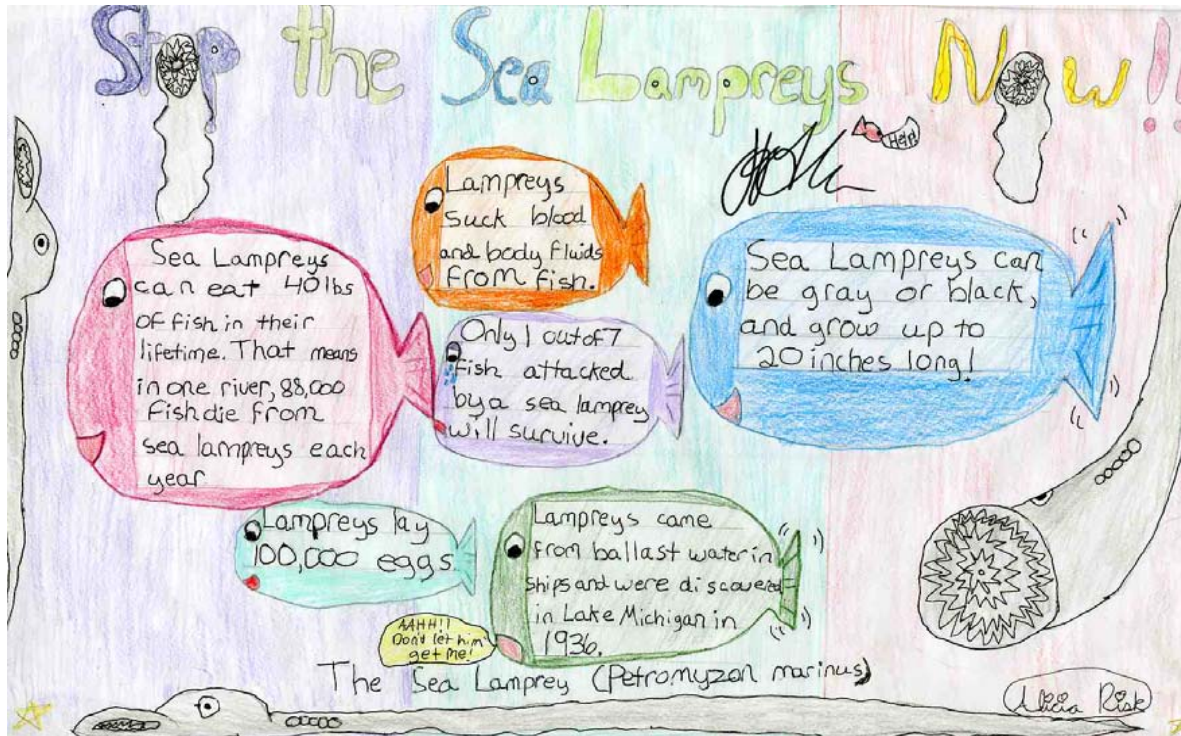 Stop the Sea Lampreys Now!!
Help!
Lampreys
suck blood
and body fluids
from fish.
Sea Lampreys
can eat 40 lbs
of fish in their
lifetime. That means
in one river, 88,000
Fish die from
sea lampreys each
year
Only 1 out of 7
fish attacked
by a sea lamprey
will survive.
Sea Lampreys can
be gray or black,
and grow up to
20 inches long!
Lampreys lay
100,000 eggs
Lampreys came
from ballast water in
ships and were discovered
in Lake Michigan in
1936.
AAHH!!
Don't let him
get me!
The Sea Lamprey (Petromyzon marinus)
Alicia Risk